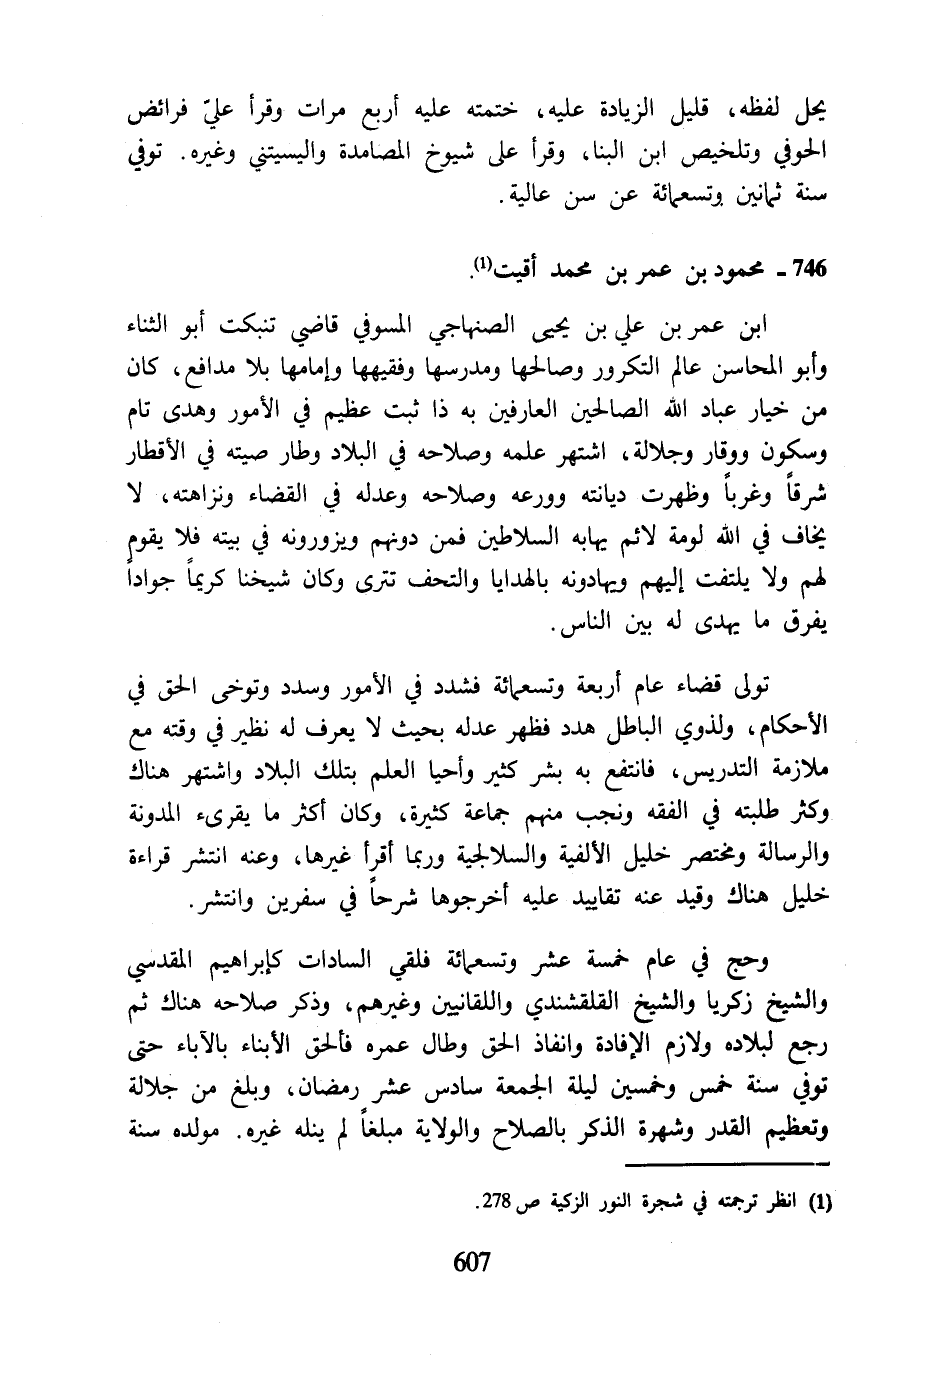 يحل لفظه، قليل الزيادة عليه، ختمته عليه أربع مرات وقرأ عليّ فرائض
الحوفي وتلخيص ابن البنا، وقرأ على شيوخ المصامدة واليسيتني وغيره. توفي
سنة ثمانين وتسعمائة عن سن عالية.
746 - محمود بن عمر بن محمد أقيت(1).
ابن عمر بن علي بن يحيى الصنهاجي المسوفي قاضي تنبكت أبو الثناء
وأبو المحاسن عالم التكرور وصالحها ومدرسها وفقيهها وإمامها بلا مدافع، كان
من خيار عباد الله الصالحين العارفين به ذا ثبت عظيم في الأمور وهدى تام
وسكون ووقار وجلالة، اشتهر علمه وصلاحه في البلاد وطار صيته في الأقطار
شرقاً وغرباً وظهرت ديانته وورعه وصلاحه وعدله في القضاء ونزاهته، لا
يخاف في الله لومة لائم يهابه السلاطين فمن دونهم ويزورونه في بيته فلا يقوم
لهم ولا يلتفت إليهم ويهادونه بالهدايا والتحف تترى وكان شيخنا كريماً جواداً
يفرق ما يهدى له بين الناس.
تولى قضاء عام أربعة وتسعمائة فشدد في الأمور وسدد وتوخى الحق في
الأحكام، ولذوي الباطل هدد فظهر عدله بحيث لا يعرف له نظير في وقته مع
ملازمة التدريس، فانتفع به بشر كثير وأحيا العلم بتلك البلاد واشتهر هناك
وكثر طلبته في الفقه ونجب منهم جماعة كثيرة، وكان أكثر ما يقرىء المدونة
والرسالة ومختصر خليل الألفية والسلالجية وربما أقرأ غيرها، وعنه انتشر قراءة
خليل هناك وقيد عنه تقاييد عليه أخرجوها شرحاً في سفرين وانتشر.
وحج في عام خمسة عشر وتسعمائة فلقي السادات كإبراهيم المقدسي
والشيخ زكريا والشيخ القلقشندي واللقانيين وغيرهم، وذكر صلاحه هناك ثم
رجع لبلاده ولازم الإفادة وانفاذ الحق وطال عمره فألحق الأبناء بالآباء حتى
توفي سنة خمس وخمسين ليلة الجمعة سادس عشر رمضان، وبلغ من جلالة
وتعظيم القدر وشهرة الذكر بالصلاح والولاية مبلغاً لم ينله غيره. مولده سنة
(1) انظر ترجمته في شجرة النور الزكية ص 278.
607